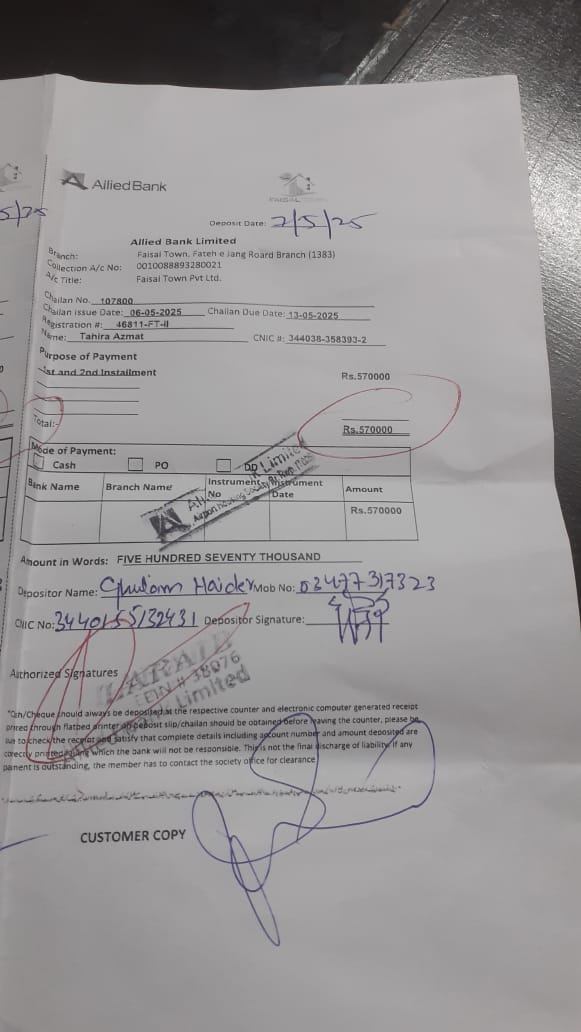 5/25
Allied Bank
FAISAL
Deposit Date: 7/5/25
Allied Bank Limited
Branch: Faisal Town, Fateh e Jang Roard Branch (1383)
Collection A/c No: 0010088893280021
A/c Title: Faisal Town Pvt Ltd.
Challan No. 107800
Challan Issue Date: 06-05-2025 Challan Due Date: 13-05-2025
Registration #: 46811-FT-II
Name: Tahira Azmat CNIC #: 344038-358393-2
Purpose of Payment
1st and 2nd Installment Rs.570000
Total:- Rs.570000
Mode of Payment:
Cash PO DD
Bank Name Branch Name Instrument No Instrument Date Amount
Rs.570000
Limited
Amount in Words: FIVE HUNDRED SEVENTY THOUSAND
Depositor Name: Ghulam Haider Mob No: 03477317323
CNIC No: 3440155132431 Depositor Signature:
Authorized Signatures
LARAIB
EIN # 38076
Limited
"Cash/Cheque should always be deposited at the respective counter and electronic computer generated receipt
printed through flatbed printer on deposit slip/challan should be obtained before leaving the counter, please be
sure to check the receipt and satisfy that complete details including account number and amount deposited are
correctly printed which the bank will not be responsible. This is not the final discharge of liability. If any
payment is outstanding, the member has to contact the society office for clearance
CUSTOMER COPY